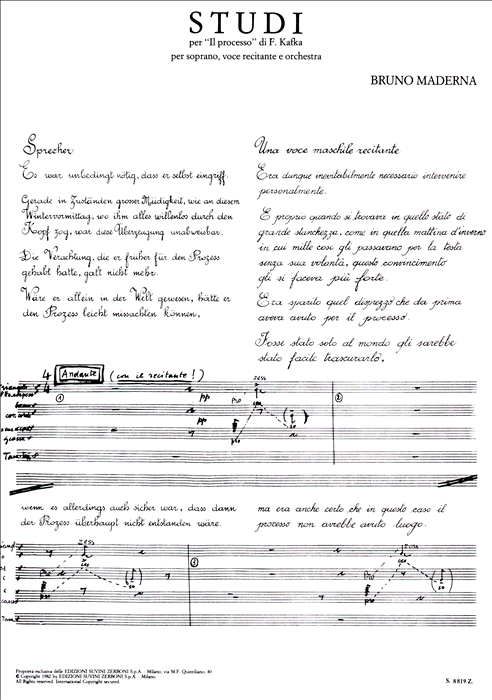 STUDI
per "Il processo" di F. Kafka
per soprano, voce recitante e orchestra
BRUNO MADERNA
Sprecher
Es war unbedingt nötig, dass er selbst eingriff.
Gerade in Zuständen grosser Müdigkeit, wie an diesem
Wintervormittag, wo ihm alles willenlos durch den
Kopf zog, war diese Überzeugung unabweisbar.
Die Verachtung, die er früher für den Prozess
gehabt hatte, galt nicht mehr.
Wäre er allein in der Welt gewesen, hätte er
den Prozess leicht missachten können,
Una voce maschile recitante
Era dunque inevitabilmente necessario intervenire
personalmente.
E proprio quando si trovava in quello stato di
grande stanchezza, come in quella mattina d'inverno
in cui mille cose gli passavano per la testa
senza sua volontà, questo convincimento
gli si faceva più forte.
Era sparito quel disprezzo che da prima
aveva avuto per il processo.
Fosse stato solo al mondo gli sarebbe
stato facile trascurarlo,
4 4 Andante (con il recitante!)
1 pp pp ppp zess 2
wenn es allerdings auch sicher war, dass dann
der Prozess überhaupt nicht entstanden wäre.
ma era anche certo che in questo caso il
processo non avrebbe avuto luogo.
zess 3 zess
Proprietà esclusiva delle EDIZIONI SUVINI ZERBONI S.p.A. - Milano, via M.F. Quintiliano, 40
© Copyright 1982 by EDIZIONI SUVINI ZERBONI S.p.A. - Milano.
All Rights reserved. International Copyright secured.
S. 8819 Z.